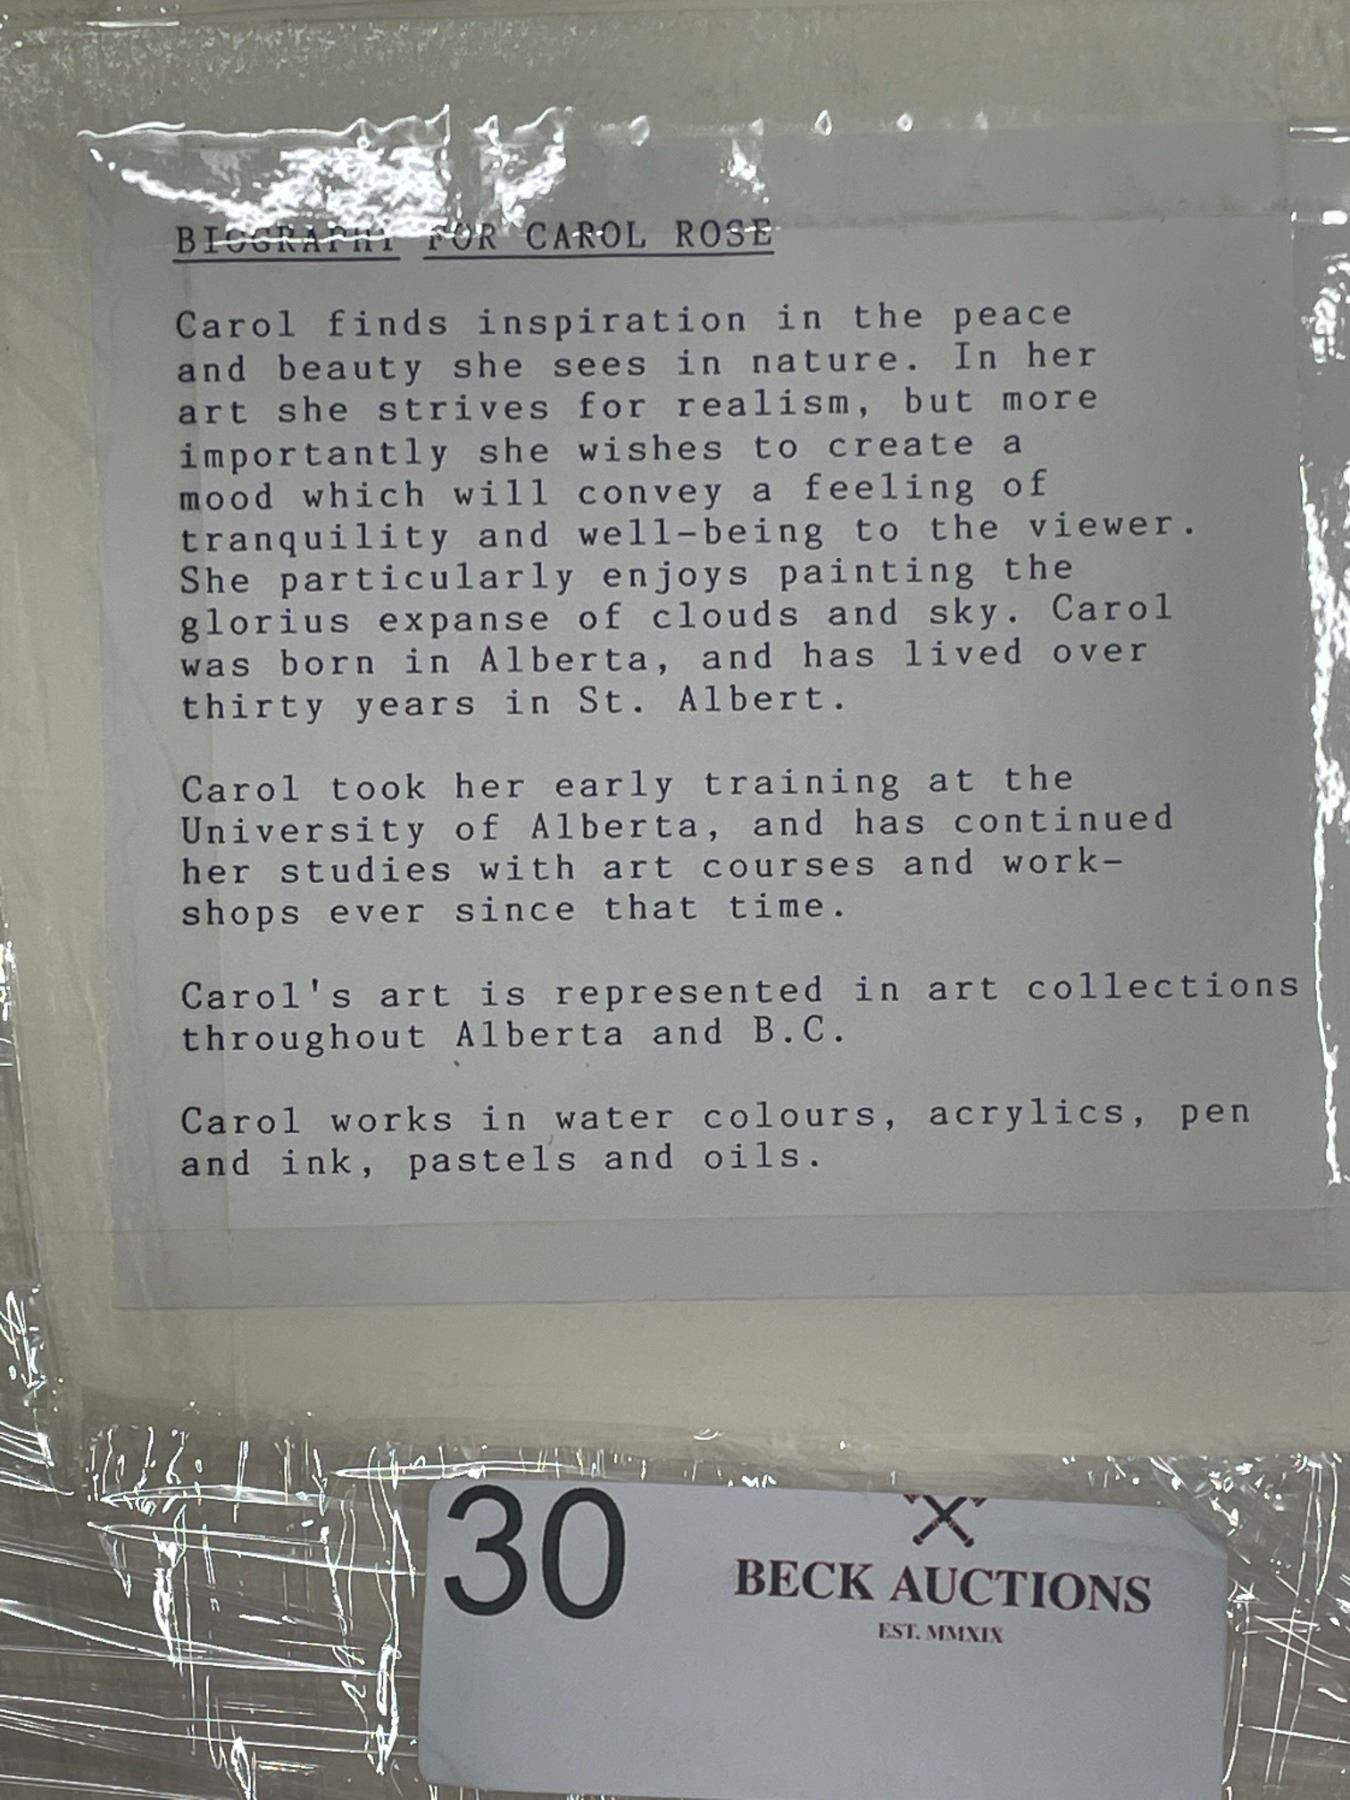 BIOGRAPHY FOR CAROL ROSE
Carol finds inspiration in the peace
and beauty she sees in nature. In her
art she strives for realism, but more
importantly she wishes to create a
mood which will convey a feeling of
tranquility and well-being to the viewer.
She particularly enjoys painting the
glorius expanse of clouds and sky. Carol
was born in Alberta, and has lived over
thirty years in St. Albert.
Carol took her early training at the
University of Alberta, and has continued
her studies with art courses and work-
shops ever since that time.
Carol's art is represented in art collections
throughout Alberta and B.C.
Carol works in water colours, acrylics, pen
and ink, pastels and oils.
30
BECK AUCTIONS
EST. MMXIX